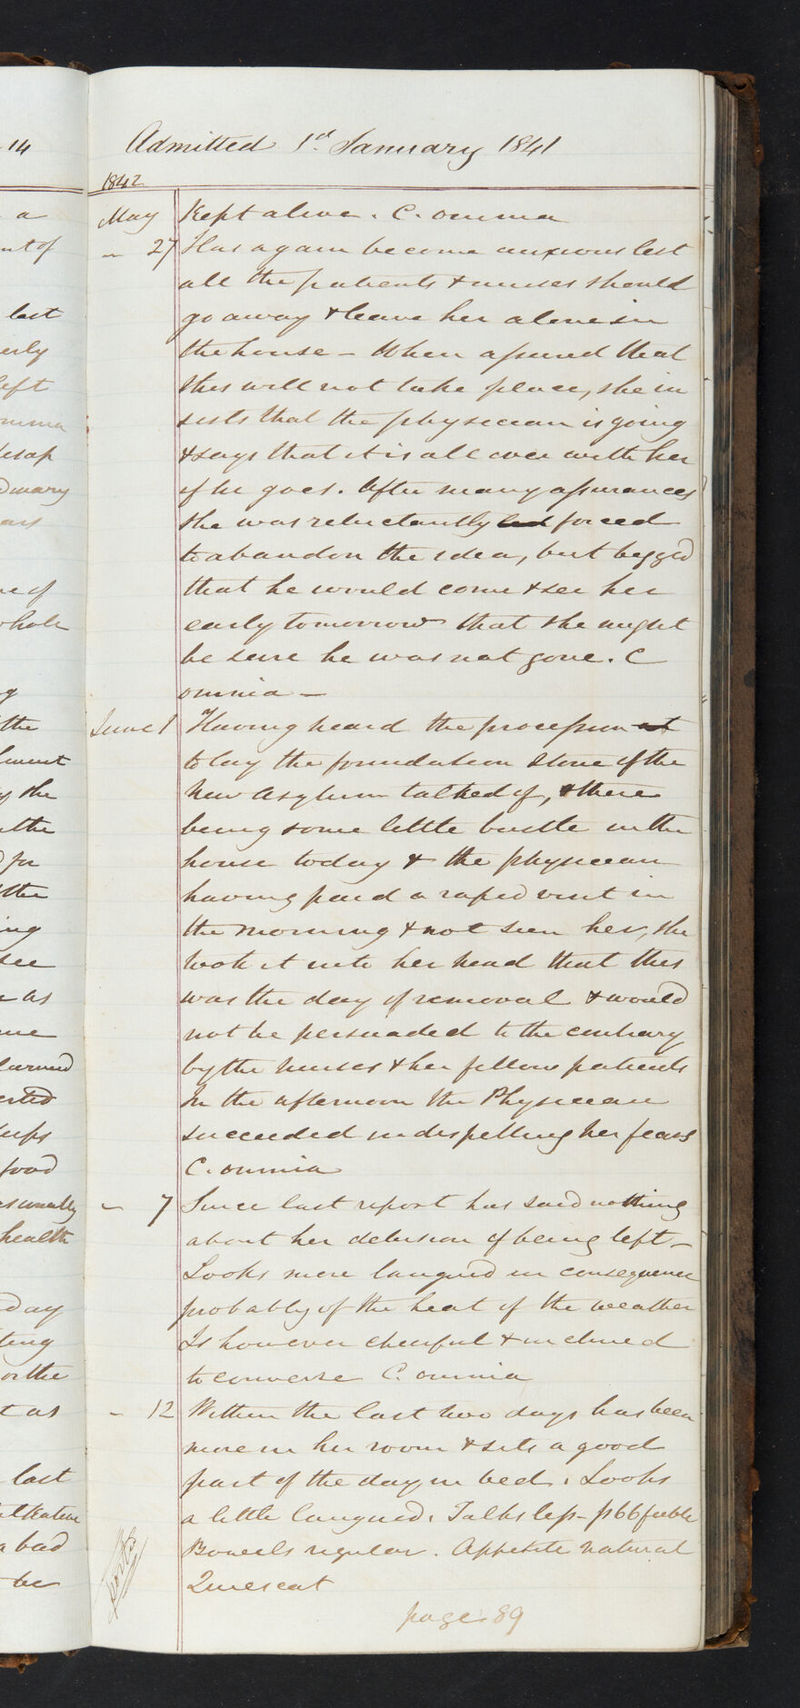 14
Admitted 1st January 1841
1842
May Kept alive. C. omnia
— 27 Has again become anxious lest
all the patients & nurses should
go away & leave her alone in
the house — When assured that
this will not take place, she in
sists that the physician is going
& says that it is all over with her
if he goes. After many assurances
she was reluctantly led forced
to abandon the idea, but begged
that he would come & see her
early tomorrow that she might
be sure he was not gone. C
omnia —
June 1 Having heard the procession at
to lay the foundation stone of the
New Asylum talked of, & there
being some little bustle in the
house today & the physician
having paid a rapid visit in
the morning & not seen her, she
took it into her head that this
was the day of removal & would
not be persuaded to the contrary
by the nurses & her fellow patients
In the afternoon the Physician
succeeded in dispelling her fears
C. omnia
— 7 Since last report has said nothing
about her delusion of being left —
Looks more languid in consequence
probably of the heat of the weather
Is however cheerful & inclined
to converse C. omnia
— 12 Within the last two days has been
more in her room & sits a good
part of the day in bed. Looks
a little languid. Talks less — p 66 feeble
Bowels regular. Appetite natural
Quiescat
page 89